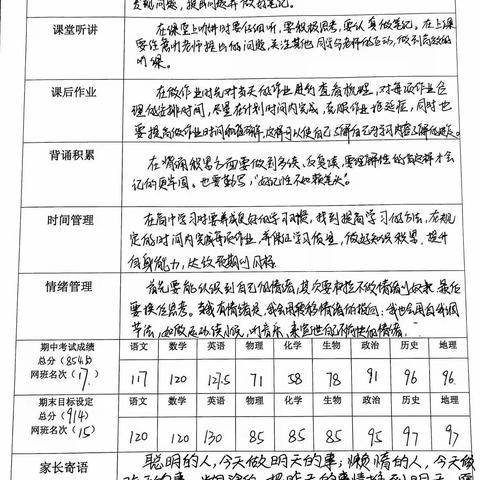 发现问题，提出问题并做好笔记。
课堂听讲
在课堂上听讲时要仔细听，要积极思考，要认真做笔记。在上课
要注意听老师提出的问题，关注其他同学与老师的互动，做到高效的
听课。
课后作业
在做作业时先对当天的作业进行查看梳理，对每项作业合
理的安排时间，尽量在计划时间内完成，克服作业拖延症，同时也
要提高做作业时间的准确率，这样可以使自己了解自己对学习内容了解的程度。
背诵积累
在背诵积累方面要做到多读、反复读，要理解性的背这样才会
记的更牢固。也要勤写，“好记性不如烂笔头”。
时间管理
在高中学习时要养成良好的学习习惯，找到提高学习的方法，在规
定的时间内完成每项作业，并保证学习质量，做好知识积累，提升
自身能力，达成预期的目标。
情绪管理
首先要能认识到自己的情绪，其次要和控不做情绪的奴隶，最后
要换位思考。当我有情绪是，我会用转移情绪的按钮，我也会用自我调
节法，如做运动，读小说，听音乐，来宣泄自己不愉快的情绪。
期中考试成绩 语文 数学 英语 物理 化学 生物 政治 历史 地理
总分（854.5）
网班名次（17） 117 120 127.5 71 58 78 91 96 96
期末目标设定 语文 数学 英语 物理 化学 生物 政治 历史 地理
总分（914）
网班名次（15） 120 120 130 85 85 85 95 97 97
家长寄语
聪明的人，今天做明天的事；懒惰的人，今天做